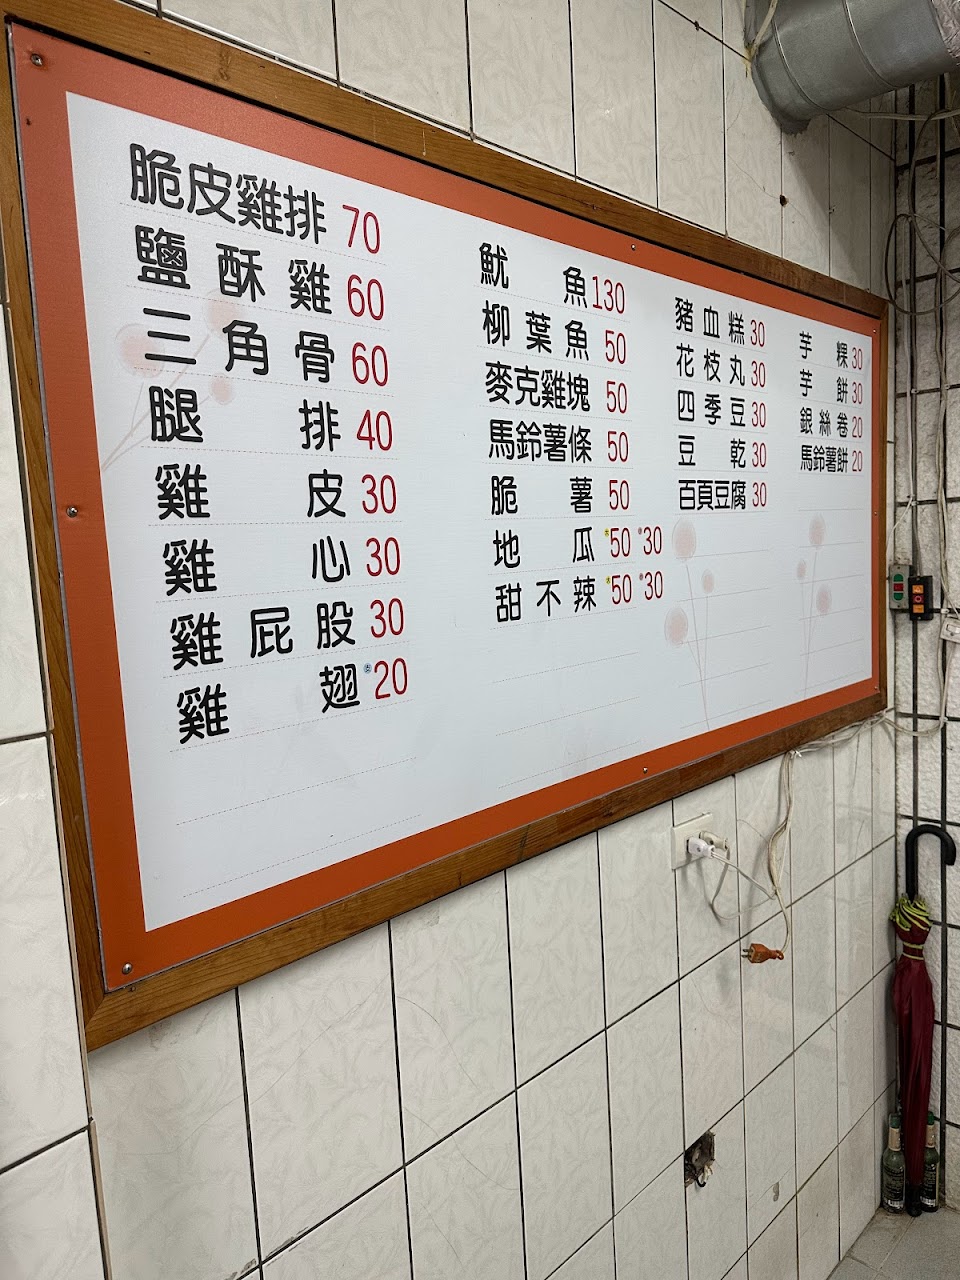 脆皮雞排 70
鹽酥雞 60
三角骨 60
腿排 40
雞皮 30
雞心 30
雞屁股 30
雞翅 20
魷魚 130
柳葉魚 50
麥克雞塊 50
馬鈴薯條 50
脆薯 50
地瓜 大50 小30
甜不辣 大50 小30
豬血糕 30
花枝丸 30
四季豆 30
豆乾 30
百頁豆腐 30
芋粿 30
芋餅 30
銀絲卷 20
馬鈴薯餅 20